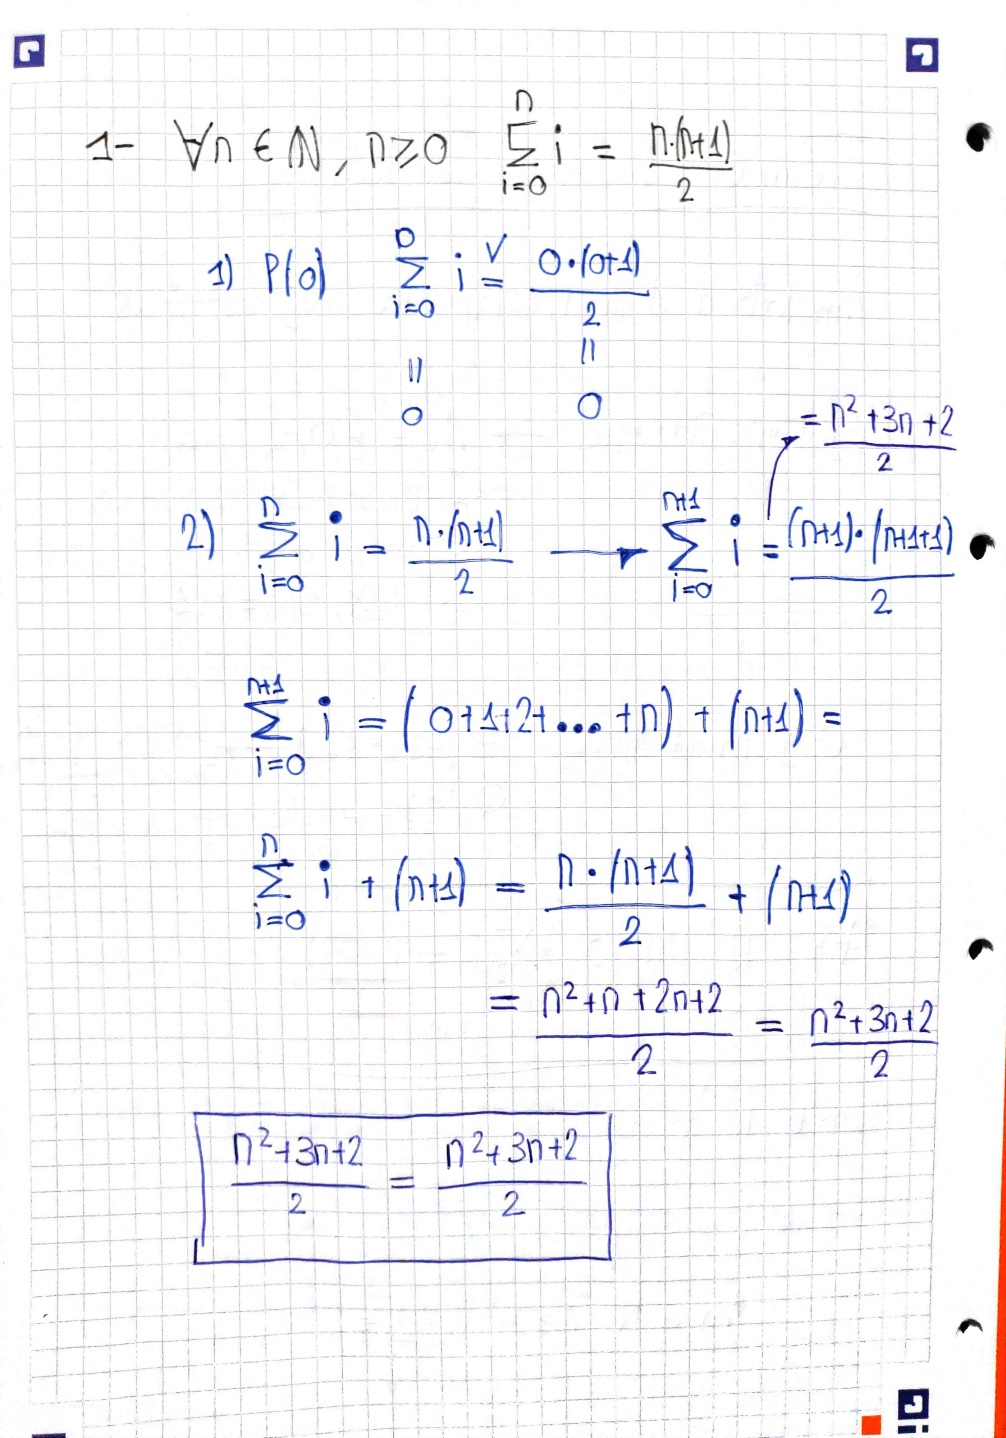 1- ∀n ∈ ℕ, n≥0 ∑_{i=0}^{n} i = n·(n+1)/2
1) P(0) ∑_{i=0}^{0} i =^{V} 0·(0+1)/2
= =
0 0
= n²+3n+2/2
2) ∑_{i=0}^{n} i = n·(n+1)/2 → ∑_{i=0}^{n+1} i = (n+1)·(n+1+1)/2
∑_{i=0}^{n+1} i = (0+1+2+...+n) + (n+1) =
∑_{i=0}^{n} i + (n+1) = n·(n+1)/2 + (n+1)
= n²+n+2n+2/2 = n²+3n+2/2
n²+3n+2/2 = n²+3n+2/2